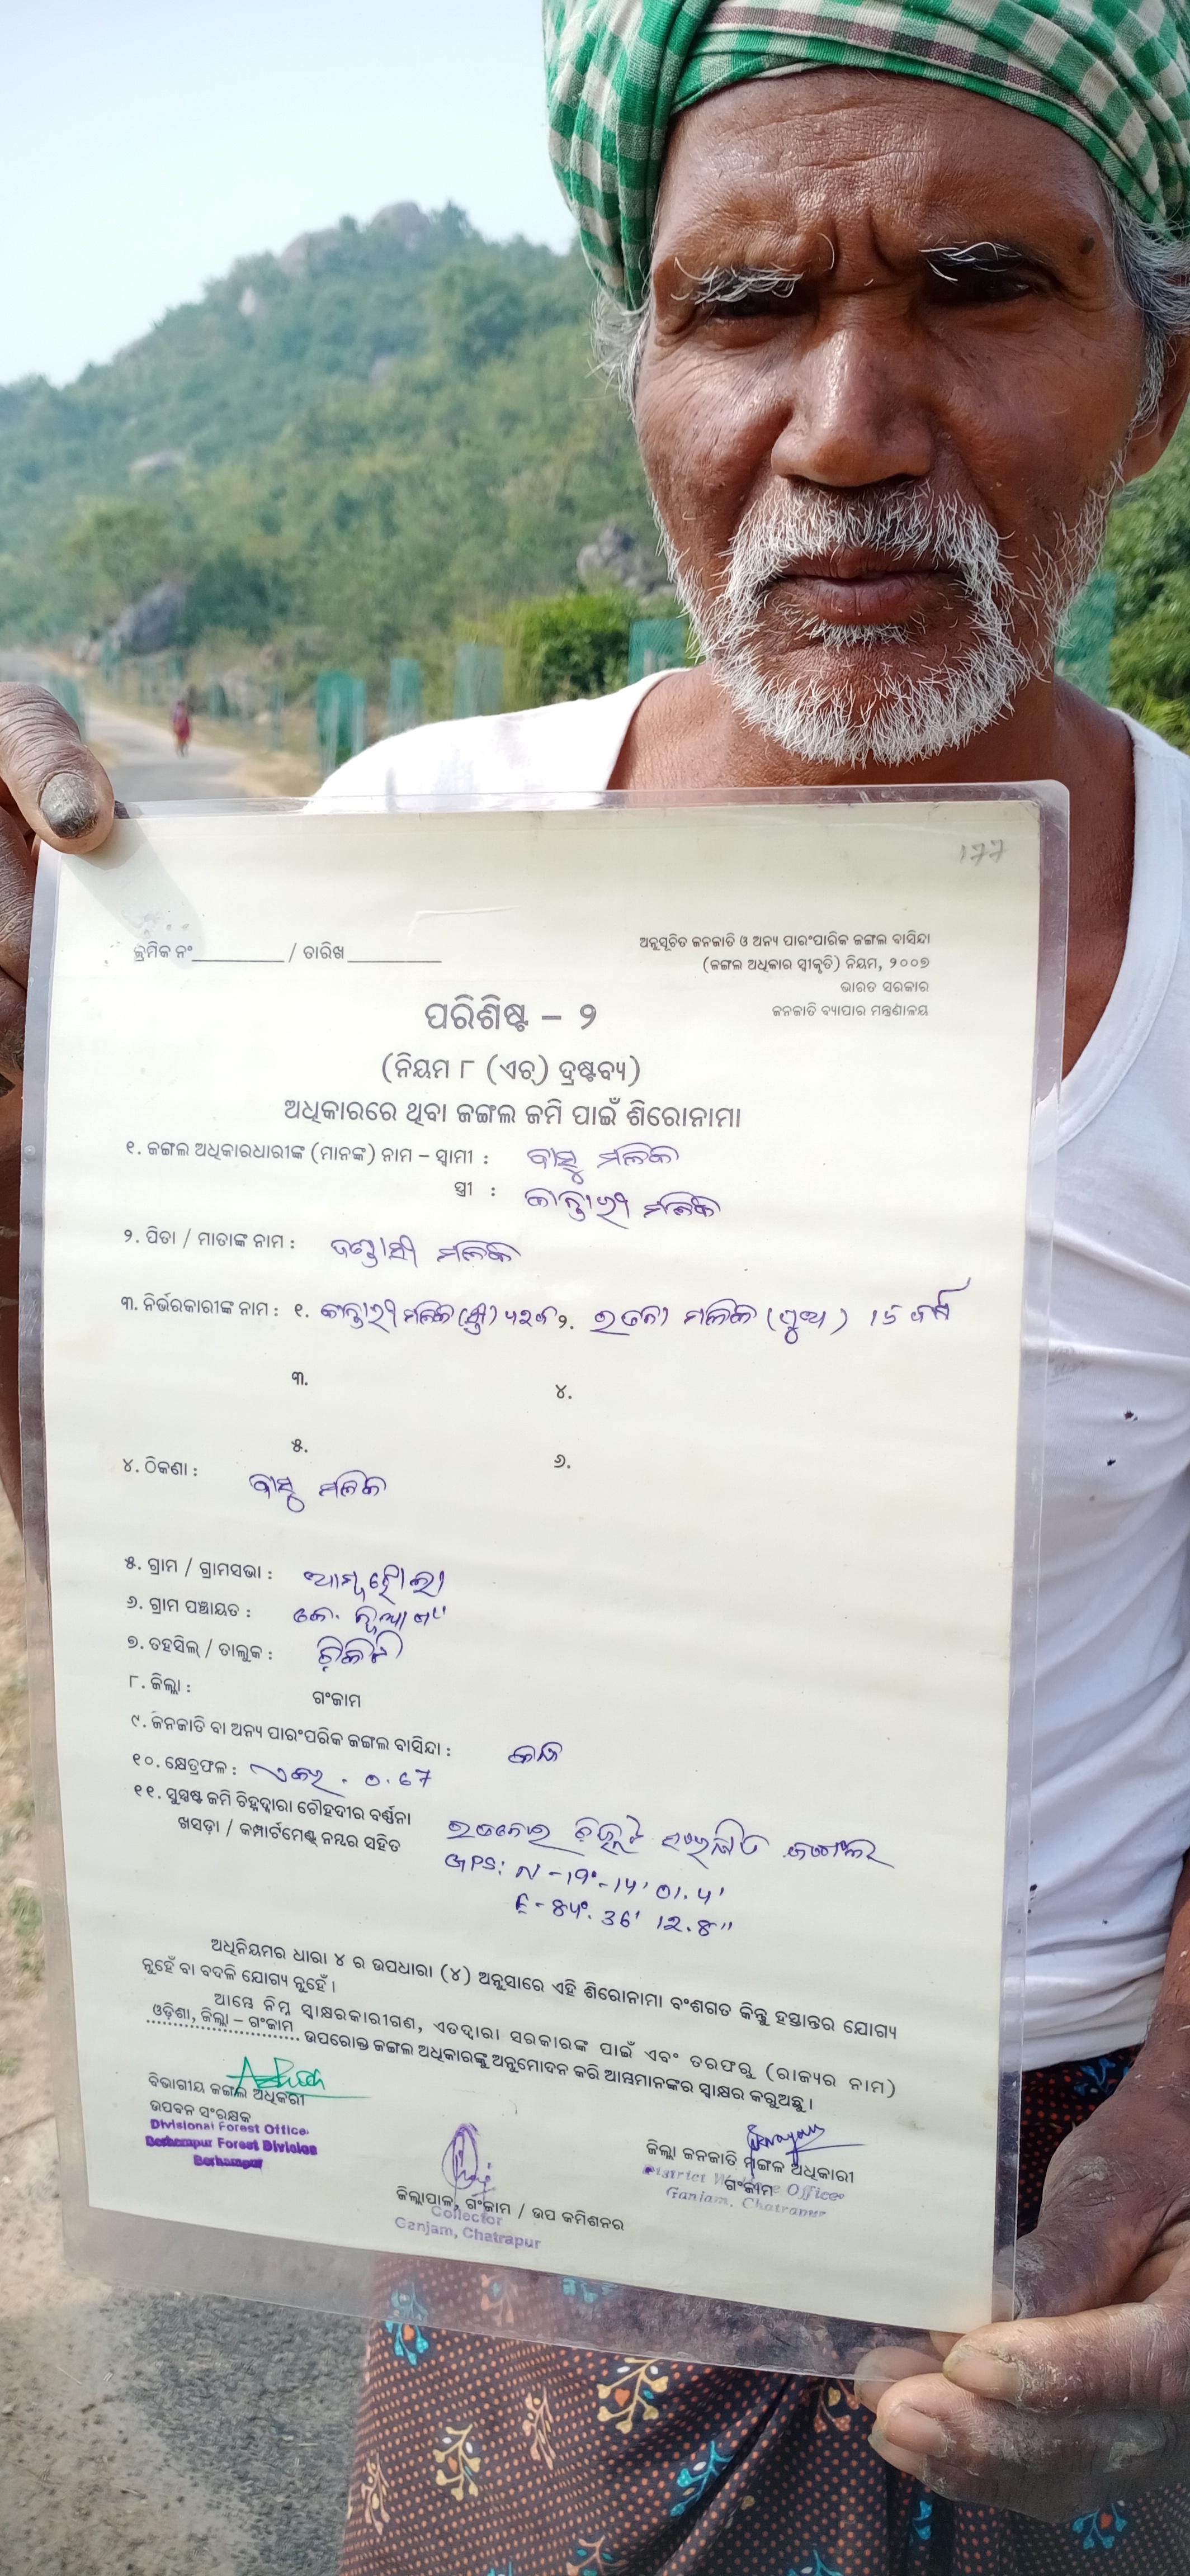 177
କ୍ରମିକ ନଂ_________ / ତାରିଖ_________
ଅନୁସୂଚିତ ଜନଜାତି ଓ ଅନ୍ୟ ପାରଂପାରିକ ଜଙ୍ଗଲ ବାସିନ୍ଦା
(ଜଙ୍ଗଲ ଅଧିକାର ସ୍ଵୀକୃତି) ନିୟମ, ୨୦୦୭
ଭାରତ ସରକାର
ଜନଜାତି ବ୍ୟାପାର ମନ୍ତ୍ରଣାଳୟ
ପରିଶିଷ୍ଟ – ୨
(ନିୟମ ୮ (ଏଚ୍) ଦ୍ରଷ୍ଟବ୍ୟ)
ଅଧିକାରରେ ଥିବା ଜଙ୍ଗଲ ଜମି ପାଇଁ ଶିରୋନାମା
୧. ଜଙ୍ଗଲ ଅଧିକାରଧାରୀଙ୍କ (ମାନଙ୍କ) ନାମ – ସ୍ଵାମୀ : ବାସୁ ମଲିକ
ସ୍ତ୍ରୀ : ମଲିକ
୨. ପିତା / ମାତାଙ୍କ ନାମ : ଦଣ୍ଡାସୀ ମଲିକ
୩. ନିର୍ଭରକାରୀଙ୍କ ନାମ : ୧. ମଲିକ (ସ୍ତ୍ରୀ) ୨. ମଲିକ (ପୁଅ) 15 ବର୍ଷ
୩. ୪.
୫. ୬.
୪. ଠିକଣା : ବାସୁ ମଲିକ
୫. ଗ୍ରାମ / ଗ୍ରାମସଭା :
୬. ଗ୍ରାମ ପଞ୍ଚାୟତ : କେ. ନୂଆଗାଁ
୭. ତହସିଲ୍ / ତାଲୁକ : ଚିକିଟି
୮. ଜିଲ୍ଲା : ଗଂଜାମ
୯. ଜନଜାତି ବା ଅନ୍ୟ ପାରଂପରିକ ଜଙ୍ଗଲ ବାସିନ୍ଦା :
୧୦. କ୍ଷେତ୍ରଫଳ : ଏକର. 0.67
୧୧. ସୁସ୍ପଷ୍ଟ ଜମି ଚିହ୍ନଦ୍ଵାରା ଚୌହଦୀର ବର୍ଣ୍ଣନା
ଖସଡ଼ା / କମ୍ପାର୍ଟମେଣ୍ଟ ନମ୍ବର ସହିତ ସଂରକ୍ଷିତ ଜଙ୍ଗଲ
GPS: N - 19°
36' 12.8"
ଅଧିନିୟମର ଧାରା ୪ ର ଉପଧାରା (୪) ଅନୁସାରେ ଏହି ଶିରୋନାମା ବଂଶଗତ କିନ୍ତୁ ହସ୍ତାନ୍ତର ଯୋଗ୍ୟ
ନୁହେଁ ବା ବଦଳି ଯୋଗ୍ୟ ନୁହେଁ ।
ଆମ୍ଭେ ନିମ୍ନ ସ୍ଵାକ୍ଷରକାରୀଗଣ, ଏତଦ୍ଵାରା ସରକାରଙ୍କ ପାଇଁ ଏବଂ ତରଫରୁ (ରାଜ୍ୟର ନାମ)
ଓଡ଼ିଶା, ଜିଲ୍ଲା – ଗଂଜାମ ଉପରୋକ୍ତ ଜଙ୍ଗଲ ଅଧିକାରଙ୍କୁ ଅନୁମୋଦନ କରି ଆମ୍ଭମାନଙ୍କର ସ୍ଵାକ୍ଷର କରୁଅଛୁ ।
ବିଭାଗୀୟ ଜଙ୍ଗଲ ଅଧିକରୀ
ଉପବନ ସଂରକ୍ଷକ
Divisional Forest Office
Berhampur Forest Division
Berhampur
ଜିଲ୍ଲାପାଳ, ଗଂଜାମ / ଉପ କମିଶନର
Collector
Ganjam, Chatrapur
ଜିଲ୍ଲା ଜନଜାତି ମଙ୍ଗଳ ଅଧିକାରୀ
ଗଂଜାମ
District Welfare Officer
Ganjam, Chatrapur